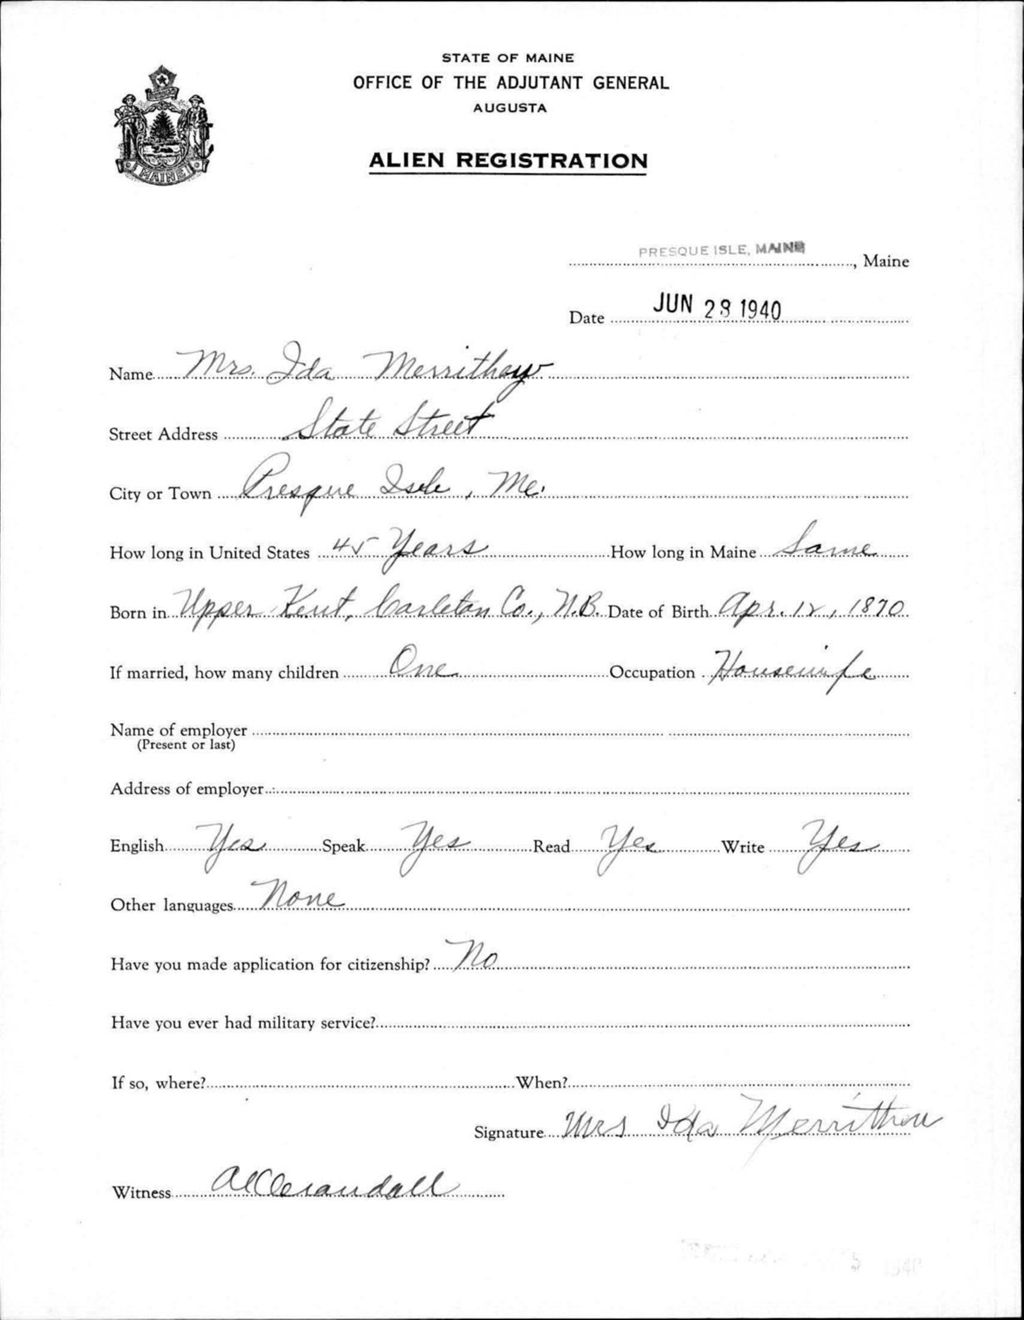 STATE OF MAINE
OFFICE OF THE ADJUTANT GENERAL
AUGUSTA
ALIEN REGISTRATION
MAINE
PRESQUE ISLE, MAINE, Maine
Date JUN 28 1940
Name Mrs. Ida Merrithew
Street Address State Street
City or Town Presque Isle, Me.
How long in United States 45 Years How long in Maine Same
Born in Upper Kent, Carleton Co., N.B. Date of Birth Apr. 12, 1870
If married, how many children One Occupation Housewife
Name of employer
(Present or last)
Address of employer
English Yes Speak Yes Read Yes Write Yes
Other languages None
Have you made application for citizenship? No
Have you ever had military service?
If so, where? When?
Signature Mrs Ida Merrithew
Witness Crandall